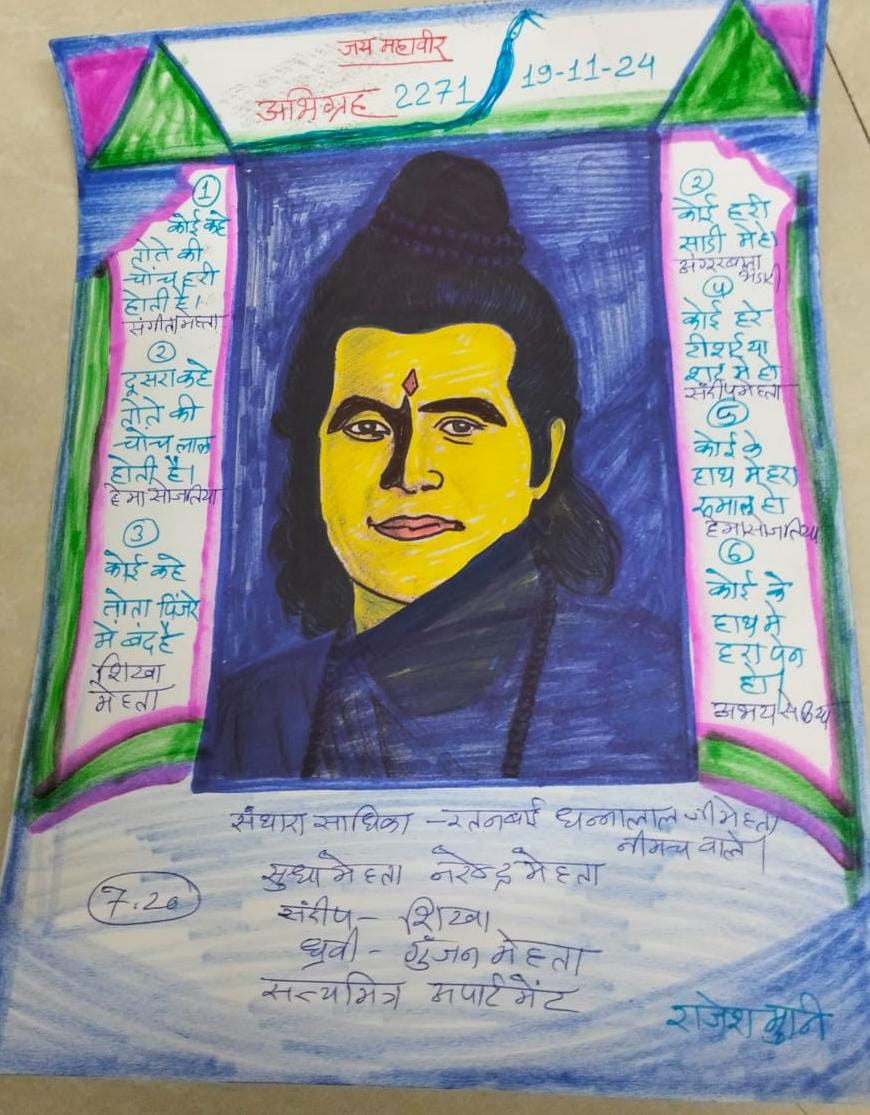 जय महावीर
अभिग्रह 2271 19-11-24
①
कोई कहे
तोते की
चोंच हरी
होती है।
संगीता मेहता
②
दूसरा कहे
तोते की
चोंच लाल
होती है।
हेमा सोजतिया
③
कोई कहे
तोता पिंजरे
में बंद है
शिखा
मेहता
कोई हरी
साडी मे हो
भंडारी
④
कोई हरे
टीशर्ट या
शर्ट मे हो
संदीप मेहता
⑤
कोई के
हाथ मे हरा
रूमाल हो
हेमा सोजतिया
⑥
कोई के
हाथ मे
हरा पेन
हो।
अभय
संथारा साधिका - रतनबाई धन्नालाल जी मेहता
नीमच वाले।
सुधा मेहता नरेन्द्र मेहता
7.20
संदीप - शिखा
ध्रुवी - गुंजन मेहता
सत्यमित्र अपार्टमेंट
राजेश मुनि